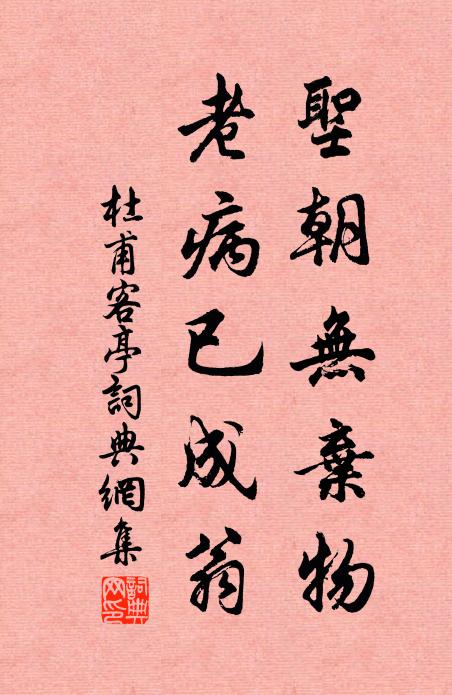 聖朝無棄物
老病已成翁
杜甫客亭詞典網集
詞典
网印